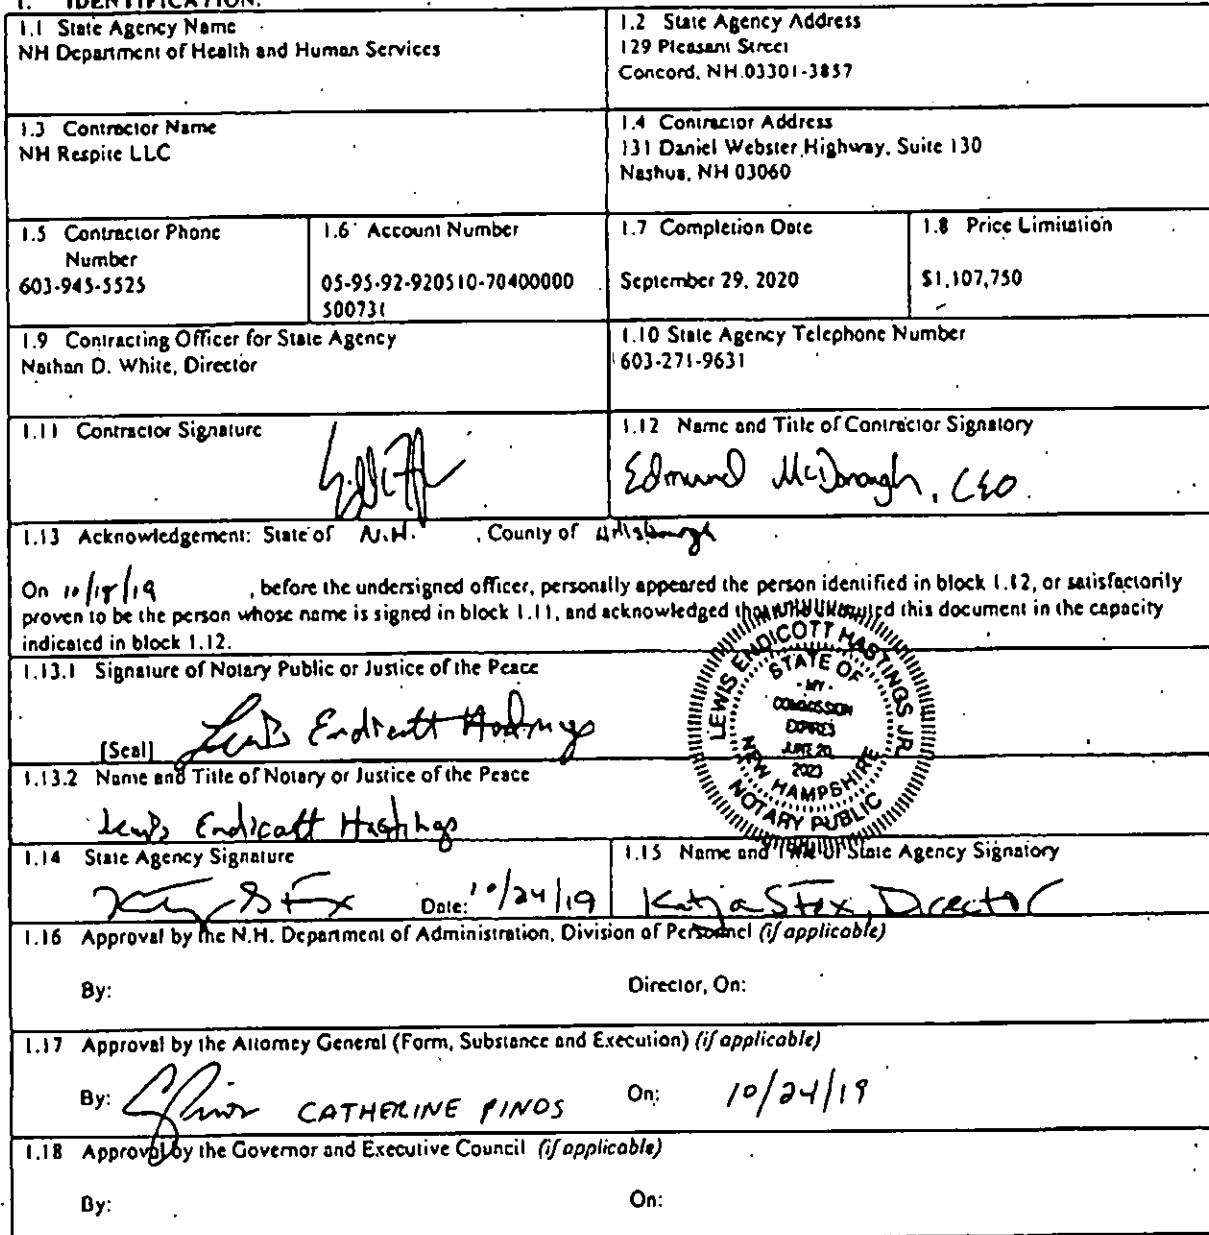 1. IDENTIFICATION.
1.1 State Agency Name
NH Department of Health and Human Services
1.2 State Agency Address
129 Pleasant Street
Concord, NH 03301-3857
1.3 Contractor Name
NH Respite LLC
1.4 Contractor Address
131 Daniel Webster Highway, Suite 130
Nashua, NH 03060
1.5 Contractor Phone
Number
603-945-5525
1.6 Account Number
05-95-92-920510-70400000
500731
1.7 Completion Date
September 29, 2020
1.8 Price Limitation
$1,107,750
1.9 Contracting Officer for State Agency
Nathan D. White, Director
1.10 State Agency Telephone Number
603-271-9631
1.11 Contractor Signature
1.12 Name and Title of Contractor Signatory
Edmund McDonagh, CEO
1.13 Acknowledgement: State of N.H. , County of
On 10/18/19 , before the undersigned officer, personally appeared the person identified in block 1.12, or satisfactorily
proven to be the person whose name is signed in block 1.11, and acknowledged this document in the capacity
indicated in block 1.12.
1.13.1 Signature of Notary Public or Justice of the Peace
[Seal] Lewis Endicott Hastings
LEWIS ENDICOTT HASTINGS JR.
STATE OF
NEW HAMPSHIRE
· MY ·
COMMISSION
EXPIRES
JUNE 20
2023
NOTARY PUBLIC
1.13.2 Name and Title of Notary or Justice of the Peace
Lewis Endicott Hastings
1.14 State Agency Signature
Date: 10/24/19
1.15 Name and Title of State Agency Signatory
Katja S Fox, Director
1.16 Approval by the N.H. Department of Administration, Division of Personnel (if applicable)
By: Director, On:
1.17 Approval by the Attorney General (Form, Substance and Execution) (if applicable)
By: CATHERINE PINOS On: 10/24/19
1.18 Approval by the Governor and Executive Council (if applicable)
By: On: